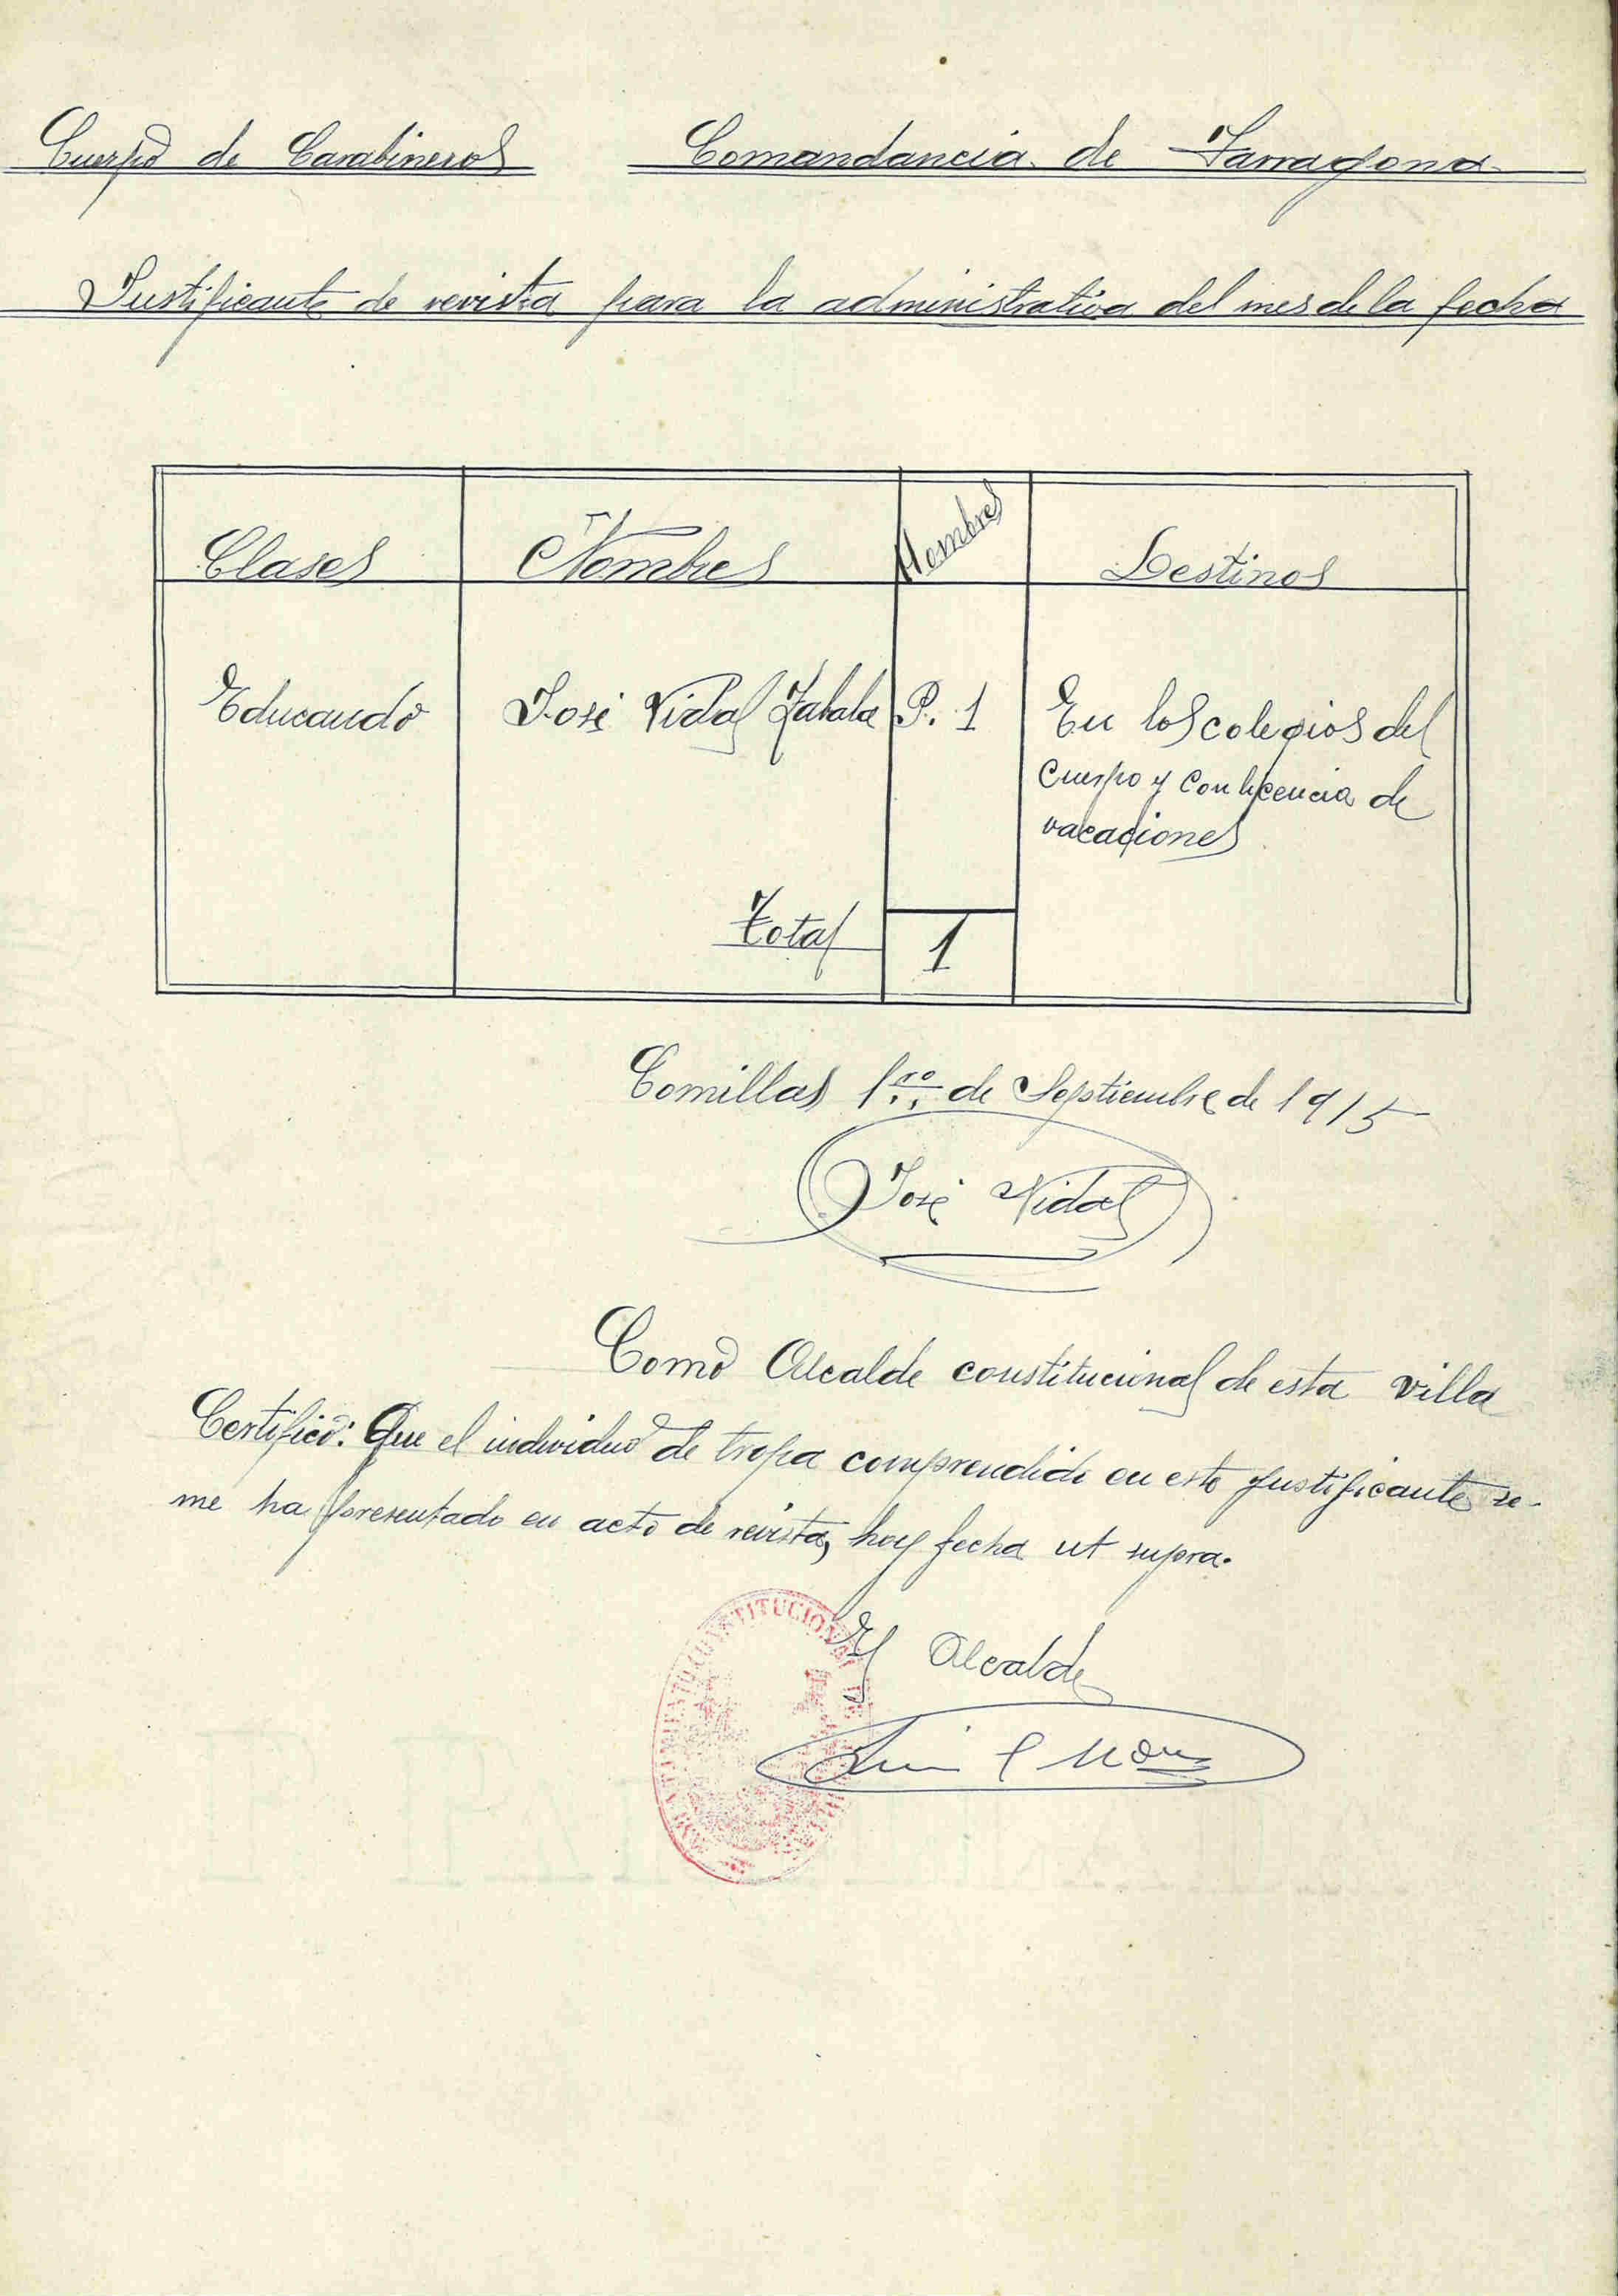 Cuerpo de Carabineros Comandancia de Tarragona
Justificante de revista para la administrativa del mes de la fecha
Clases Nombres Hombres Destinos
Educando José Vidal Zabala P. 1 En los colegios del
cuerpo y con licencia de
vacaciones
Total 1
Comillas 1ro de Septiembre de 1915
José Vidal
Como Alcalde constitucional de esta villa
Certifico: Que el individuo de tropa comprendido en este justificante se
me ha presentado en acto de revista, hoy fecha ut supra.
El Alcalde